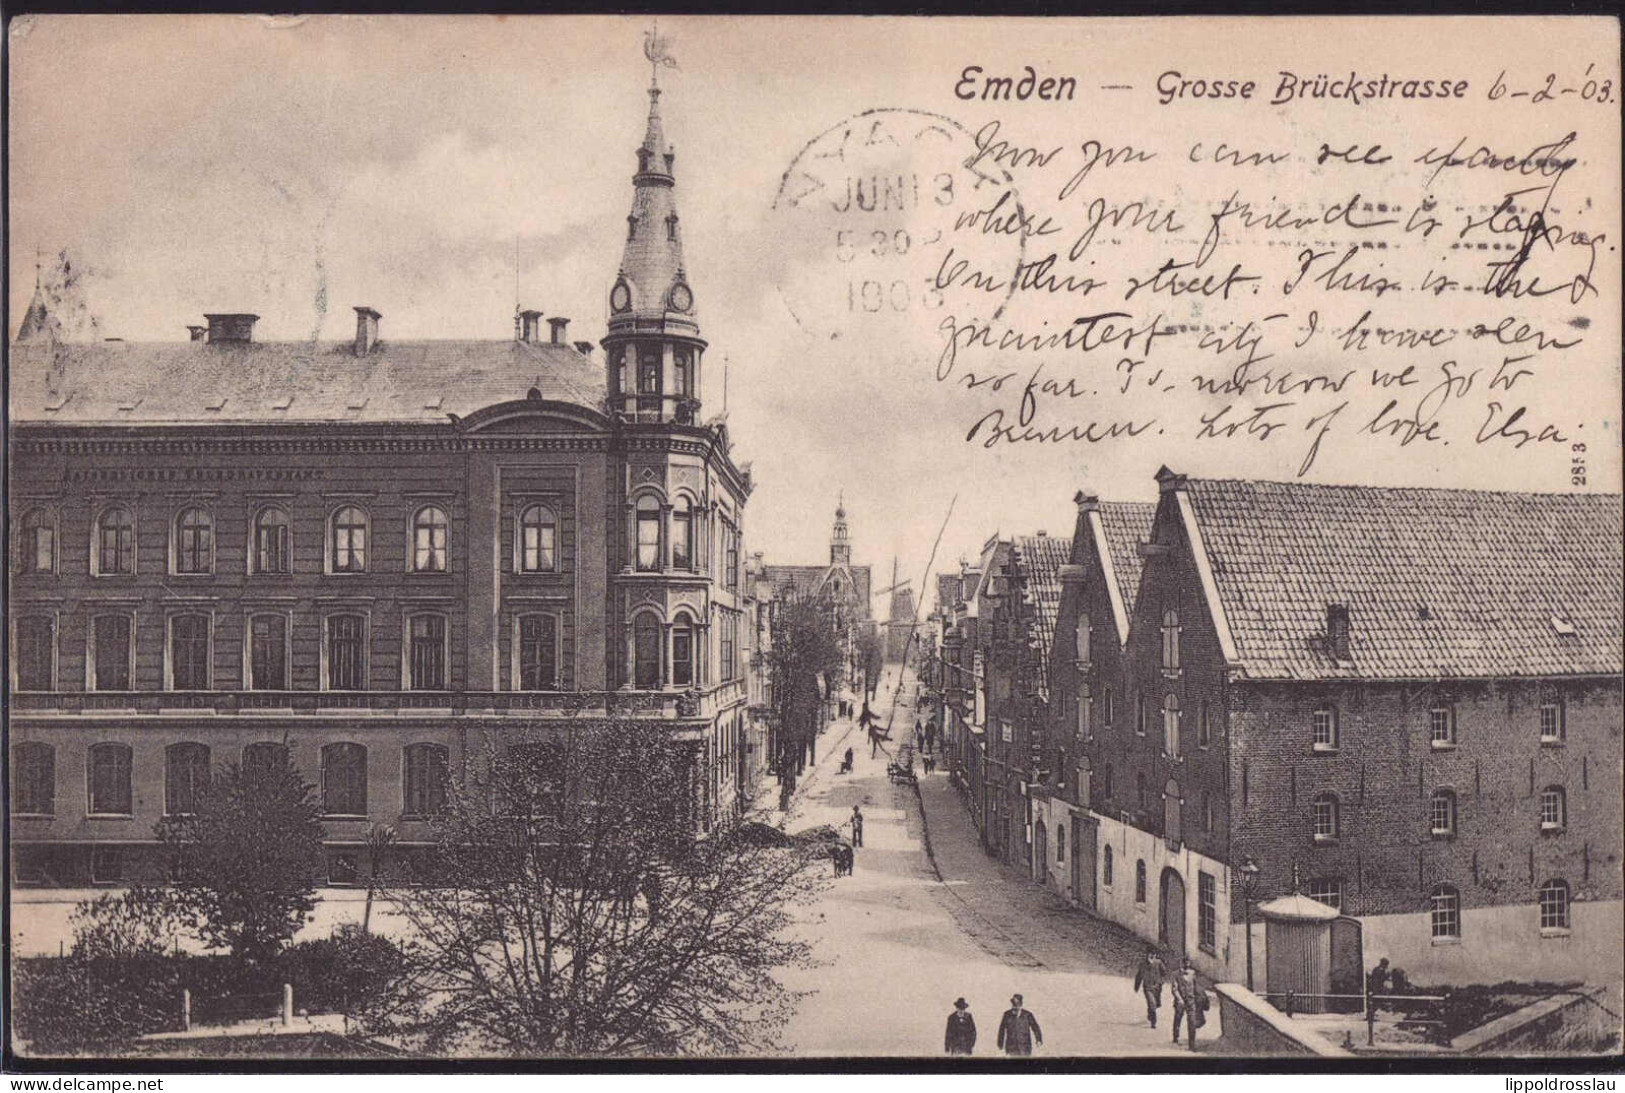 Emden — Grosse Brückstrasse 6-2-'03.
Now you can see exactly
where your friend is staying.
On this street. This is the
quaintest city I have seen
so far. To-morrow we go to
Bremen. Lots of love. Elsa.
JUN 13
5 30 P
190
2853
KAISERLICHES TELEGRAPHENAMT
lippoldrosslau